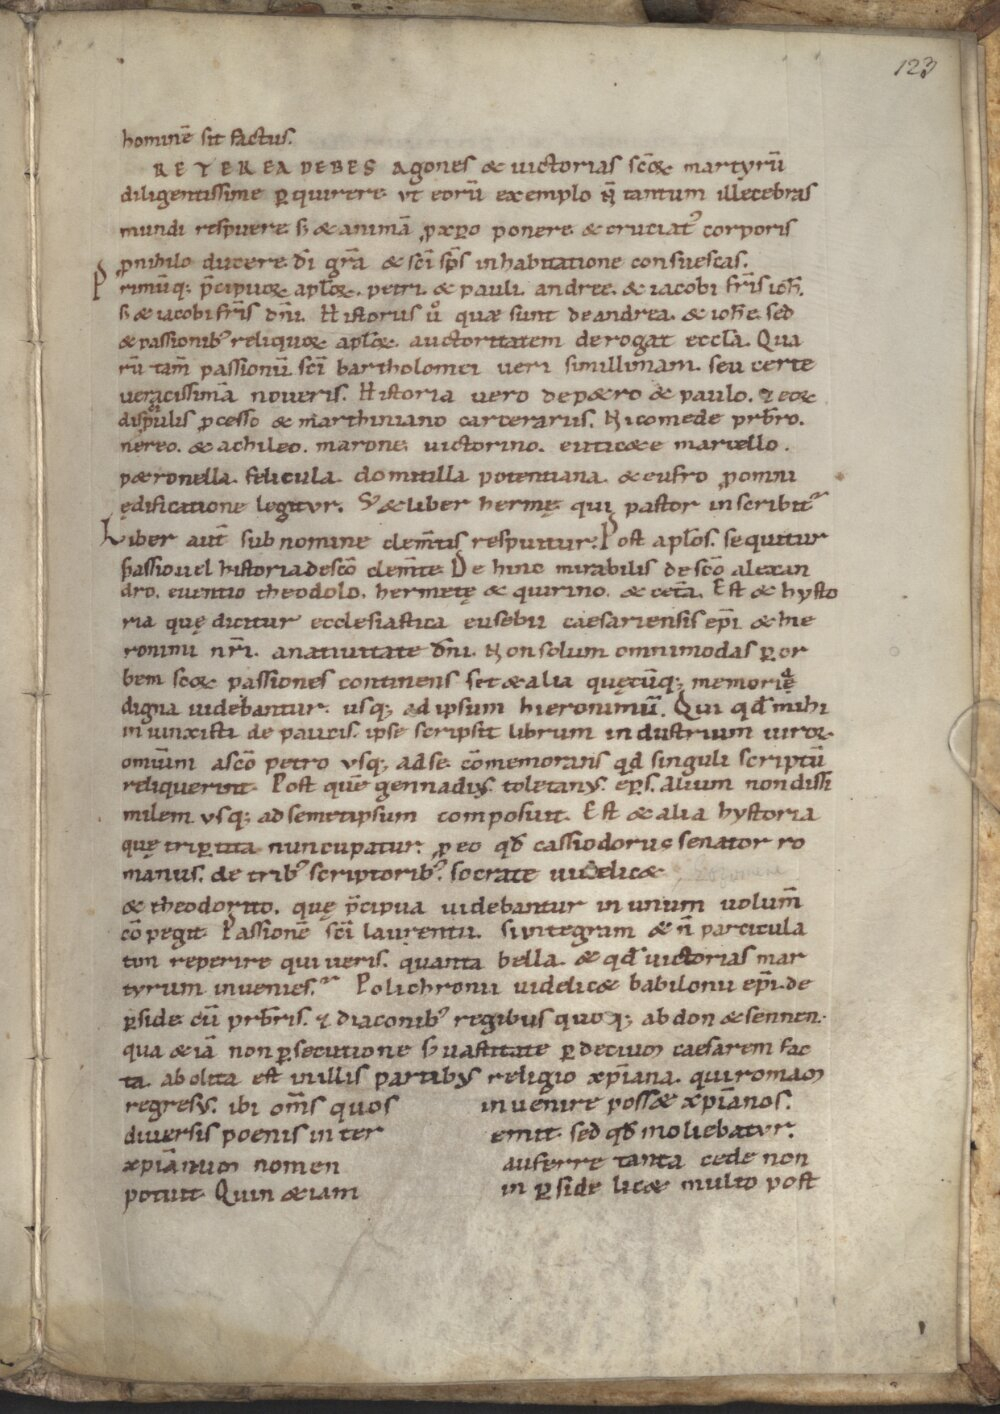 123
hominē sit factus.
RETEREA DEBES agones & uictorias scōꝝ martyrū
diligentissime ꝑquirere. vt eorū exemplo ñ tantum illecebras
mundi respuere. s; & animā ꝓ xpo ponere. & cruciatꝰ corporis
ꝓ nihilo ducere. dī grā & scī sps̄ inhabitatione consuescas.
Primūq; p̄cipuoꝝ aplōꝝ. petri. & pauli. andree. & iacobi fr̄is ioh̄.
s; & iacobi fr̄is dn̄i. Historus ů quae sunt de andrea. & ioh̄e. sed
& passionibꝰ reliquoꝝ aplōꝝ. auctoritatem derogat eccłā. Qua
rū tam̄ passionū scī bartholomei ueri simillimam. seu certe
ueracissimā noueris. Historia uero de p&ro & paulo. & eoꝝ
discipulis ꝓcesso & marthiniano carcerariis. Nicomede prb̄ro.
nereo. & achileo. marone. uictorino. eutic&e marcello.
p&ronella. felicula. domitilla potentiana. & eufro ꝓ omni
ędificatione legitvr. S; & liber hermę qui pastor inscribit᷑
Liber aut̄ sub nomine clem̄tis respuitur. Post aplōs. sequitur
passio uel historia de scō clem̄te. De hinc mirabilis de scō alexan
dro. euentio theodolo. hermetę & quirino. & cet̄a. Est & hysto
ria quę dicitur ecclesiastica eusebii caesariensis ep̄i & hie
ronimi nr̄i. a natiuitate dn̄i. Non solum omnimodas ꝑ or
bem scōꝝ passiones continens set & alia quęcūq; memorię
digna uidebantur. usq; ad ipsum hieronimū. Qui qd̄ mihi
iniunxisti de paucis. ipse scripsit librum industrium uiroꝝ
omium a scō petro vsq; ad se. cōmemorans qd̄ singuli scriptū
reliquerint. Post quē gennadiꝰ. toletanꝰ. ep̄s. alium non dissi
milem vsq; ad semetipsum composuit. Est & alia hystoria
quę triꝑtita nuncupatur. ꝓ eo qd̄ cassiodorus senator ro
manus. de tribꝰ scriptoribꝰ. socrate uidelic& Sozomene
& theodorito. quę p̄cipua uidebantur in unum uolum̄
cōpegit. Passionē scī laurentii. si integram & ñ particula
tim reperire quiueris. quanta bella. & qd̄ uictorias mar
tyrum inuenies. Polichronii uidelic& babilonii ep̄i. de
ꝑside. cū prb̄ris. & diaconibꝰ regibus quoq; abdon & sennen.
qua & iā non ꝑsecutione s; uastitate ꝑ decium caesarem fac
ta. abolita est in illis partibꝰ religio xp̄iana. qui romam
regresꝰ. ibi om̄s quos inuenire poss& xp̄ianos.
diuersis poenis inter emit. sed qd̄ moliebatvr.
xp̄ianum nomen auferre tanta cede non
potuit. Quin & iam in ꝑside lic& multo post